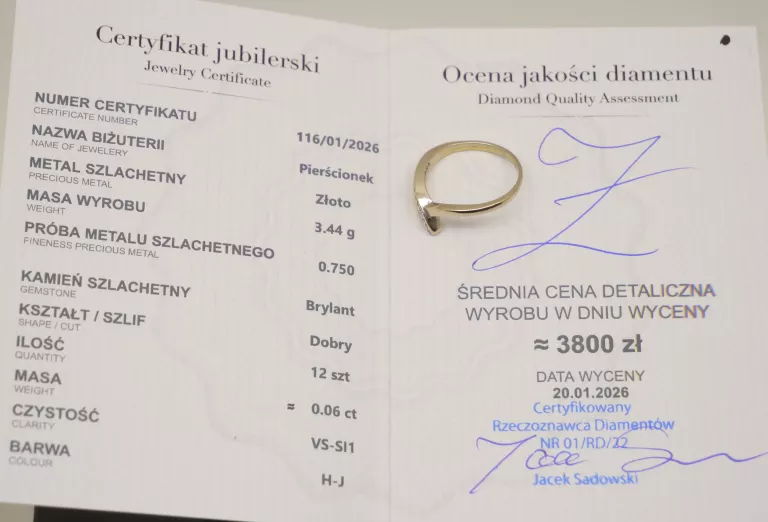 Certyfikat jubilerski
Jewelry Certificate
NUMER CERTYFIKATU
CERTIFICATE NUMBER
116/01/2026
NAZWA BIŻUTERII
NAME OF JEWELERY
Pierścionek
METAL SZLACHETNY
PRECIOUS METAL
Złoto
MASA WYROBU
WEIGHT
3.44 g
PRÓBA METALU SZLACHETNEGO
FINENESS PRECIOUS METAL
0.750
KAMIEŃ SZLACHETNY
GEMSTONE
Brylant
KSZTAŁT / SZLIF
SHAPE / CUT
Dobry
ILOŚĆ
QUANTITY
12 szt
MASA
WEIGHT
≈ 0.06 ct
CZYSTOŚĆ
CLARITY
VS-SI1
BARWA
COLOUR
H-J
Ocena jakości diamentu
Diamond Quality Assessment
ŚREDNIA CENA DETALICZNA
WYROBU W DNIU WYCENY
≈ 3800 zł
DATA WYCENY
20.01.2026
Certyfikowany
Rzeczoznawca Diamentów
NR 01/RD/22
Jacek Sadowski